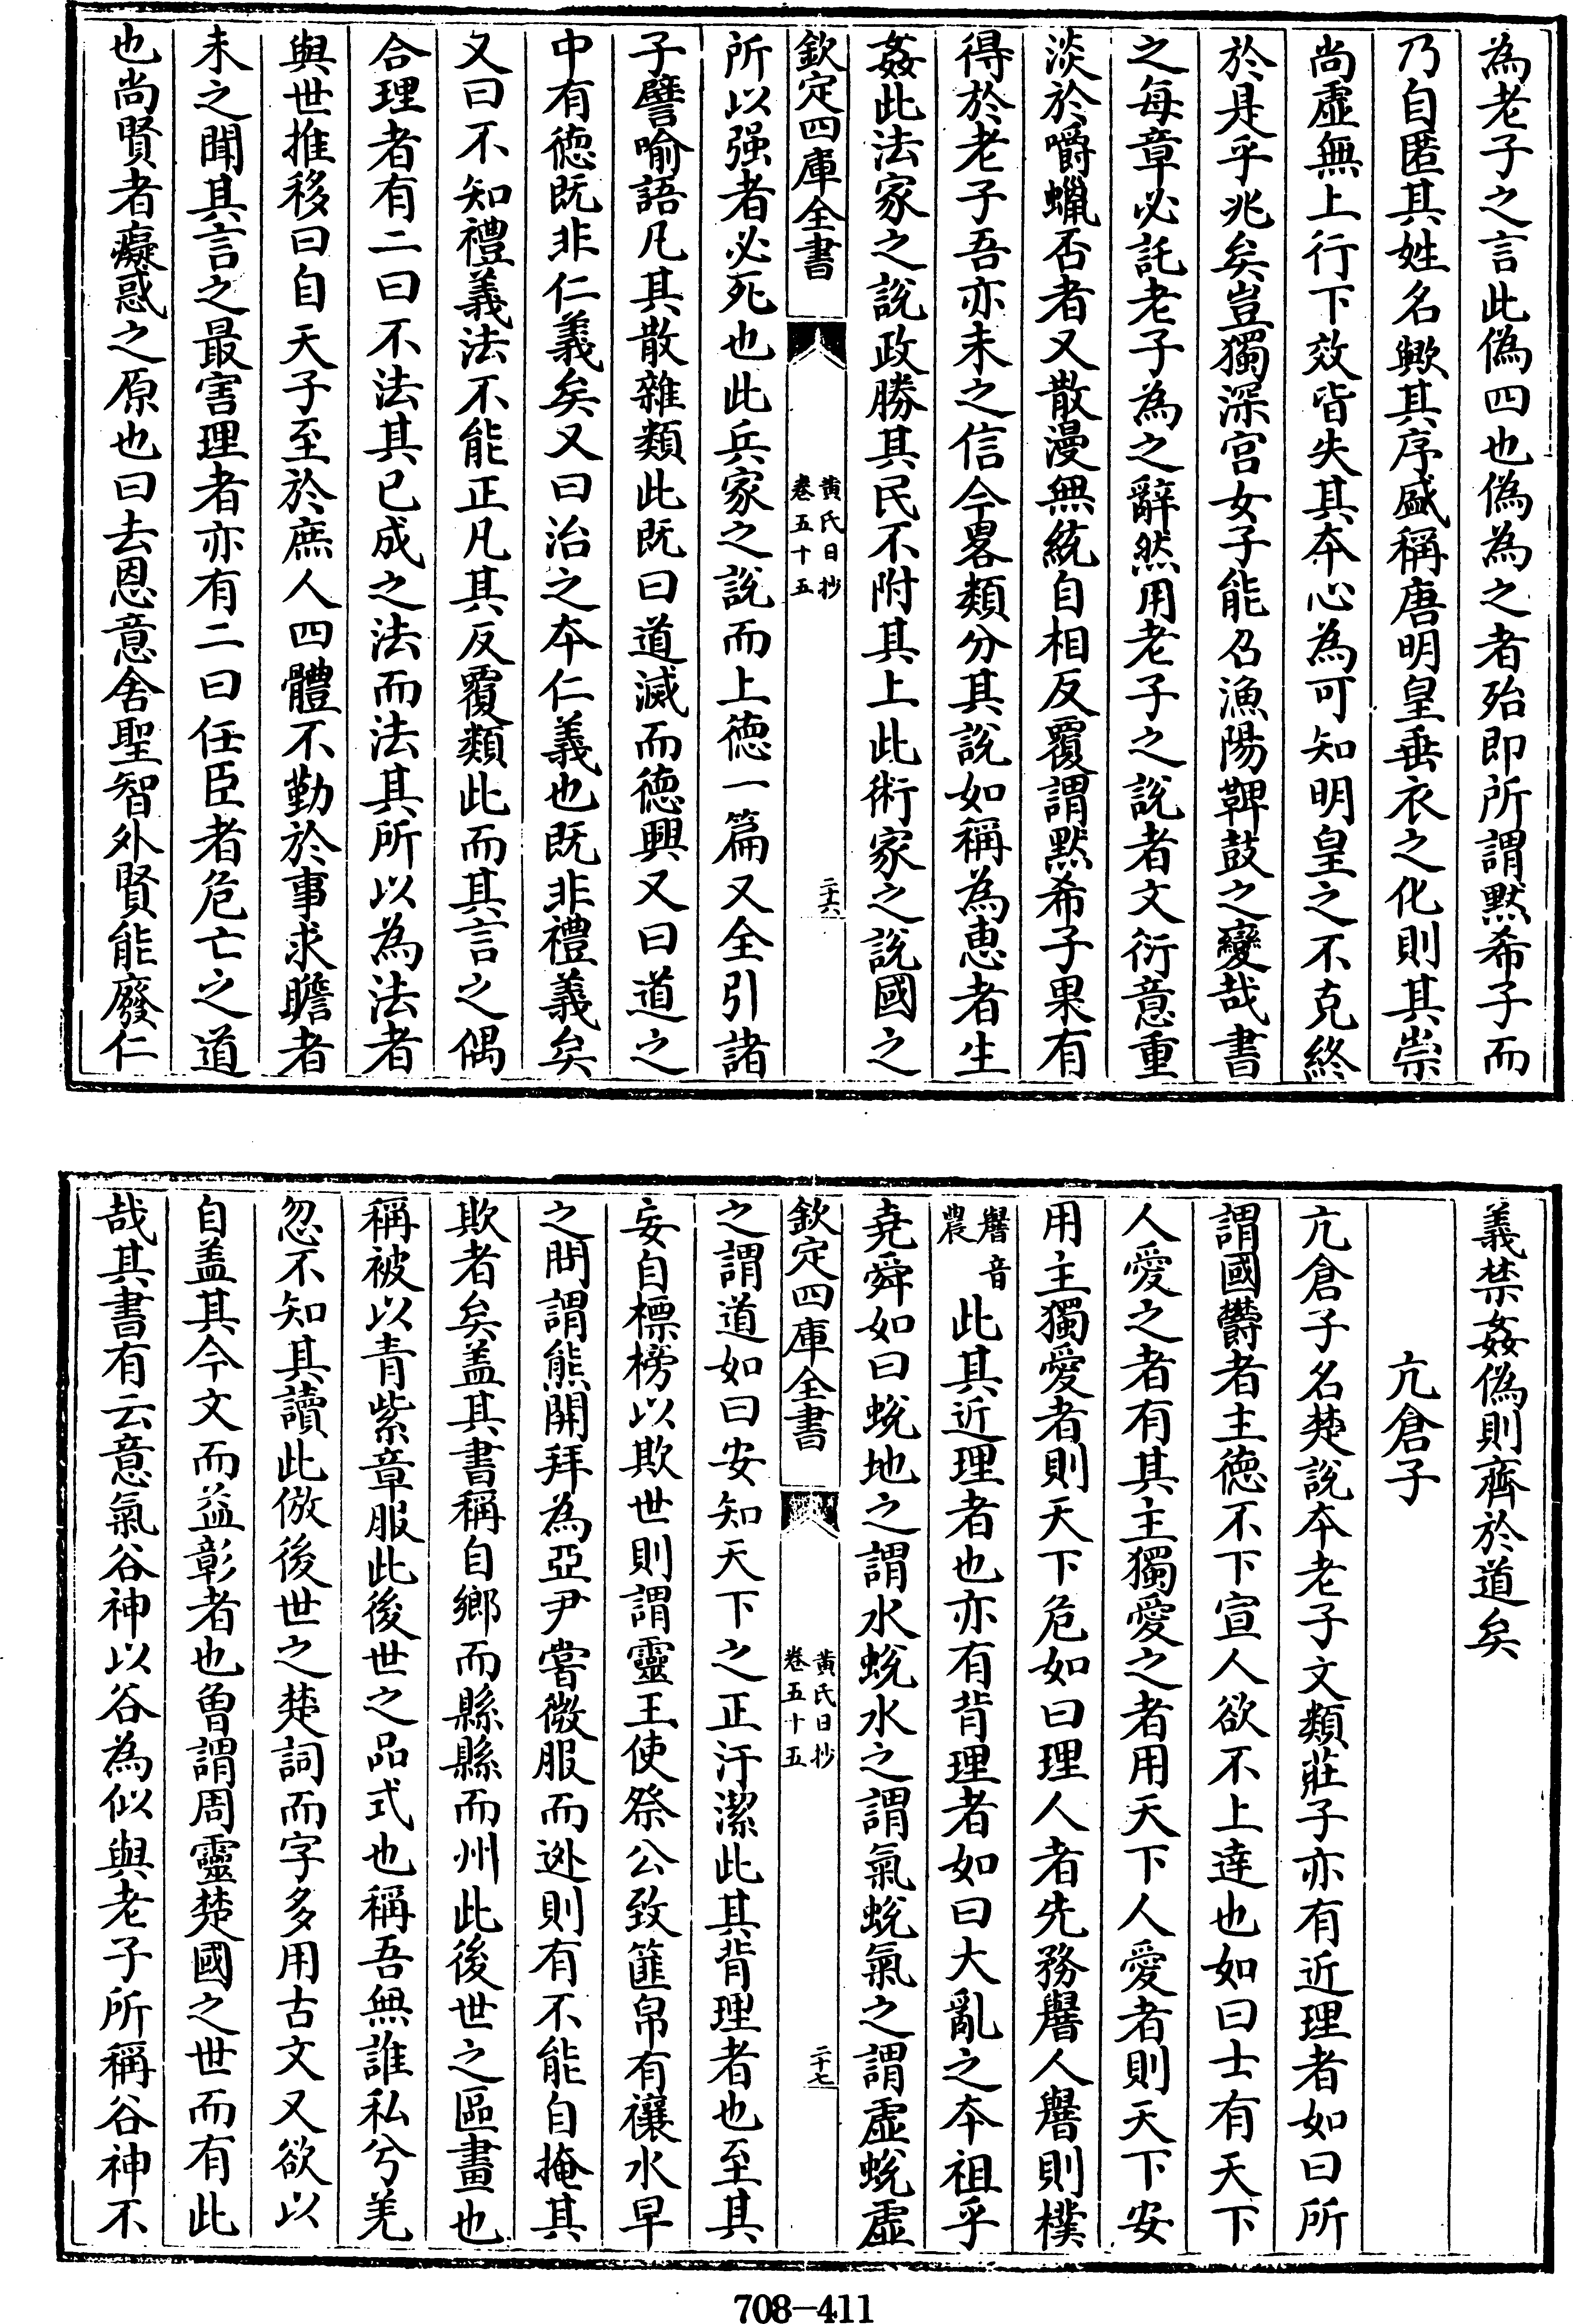 為老子之言此偽四也偽為之者殆即所謂默希子而
乃自匿其姓名歟其序盛稱唐明皇垂衣之化則其崇
尚虛無上行下效皆失其本心為可知明皇之不克終
於是乎兆矣豈獨深宮女子能召漁陽鞞鼓之變哉書
之每章必託老子為之辭然用老子之說者文衍意重
淡於嚼蠟否者又散漫無統自相反覆謂默希子果有
得於老子吾亦未之信今畧類分其說如稱為惠者生
姦此法家之說政勝其民不附其上此術家之說國之
欽定四庫全書
黃氏日抄
卷五十五
二十六
所以强者必死也此兵家之說而上德一篇又全引諸
子譬喻語凡其散雜類此既曰道滅而德興又曰道之
中有德既非仁義矣又曰治之本仁義也既非禮義矣
又曰不知禮義法不能正凡其反覆類此而其言之偶
合理者有二曰不法其已成之法而法其所以為法者
與世推移曰自天子至於庶人四體不勤於事求贍者
未之聞其言之最害理者亦有二曰任臣者危亡之道
也尚賢者癡惑之原也曰去恩意舍聖智外賢能廢仁
義禁姦偽則齊於道矣
亢倉子
亢倉子名楚說本老子文類莊子亦有近理者如曰所
謂國欝者主德不下宣人欲不上達也如曰士有天下
人愛之者有其主獨愛之者用天下人愛者則天下安
用主獨愛者則天下危如曰理人者先務農人農則樸
農音
農
此其近理者也亦有背理者如曰大亂之本祖乎
堯舜如曰蛻地之謂水蛻水之謂氣蛻氣之謂虛蛻虛
欽定四庫全書
黃氏日抄
卷五十五
二十七
之謂道如曰安知天下之正汙潔此其背理者也至其
妄自標榜以欺世則謂靈王使祭公致篚帛有禳水旱
之問謂熊開拜為亞尹嘗微服而逊則有不能自掩其
欺者矣盖其書稱自鄉而縣縣而州此後世之區畫也
稱被以青紫章服此後世之品式也稱吾無誰私兮羌
忽不知其讀此倣後世之楚詞而字多用古文又欲以
自盖其今文而益彰者也魯謂周靈楚國之世而有此
哉其書有云意氣谷神以谷為似與老子所稱谷神不
708—411